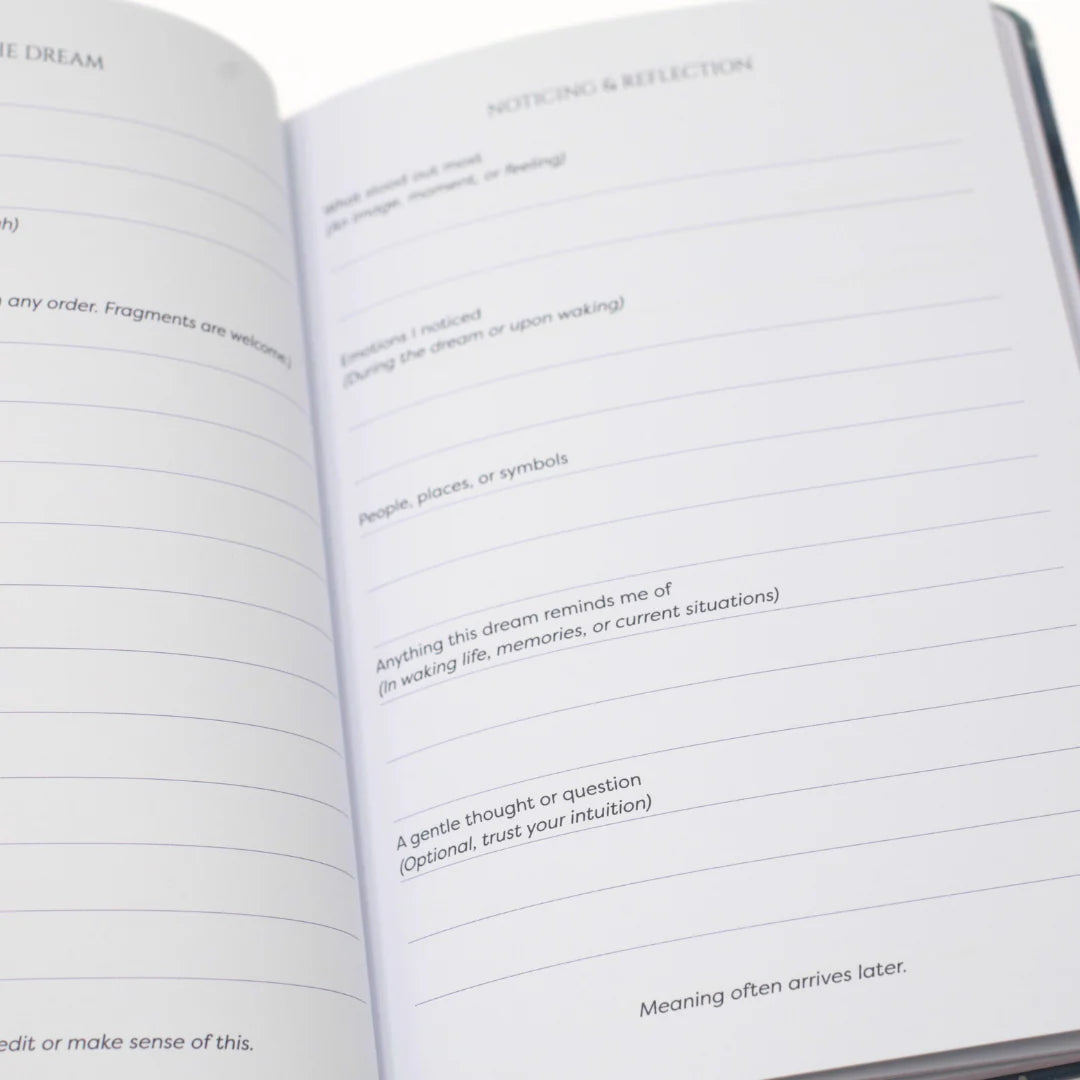 THE DREAM
gh)
any order. Fragments are welcome.)
edit or make sense of this.
NOTICING & REFLECTION
What stood out most
(An image, moment, or feeling)
Emotions I noticed
(During the dream or upon waking)
People, places, or symbols
Anything this dream reminds me of
(In waking life, memories, or current situations)
A gentle thought or question
(Optional, trust your intuition)
Meaning often arrives later.